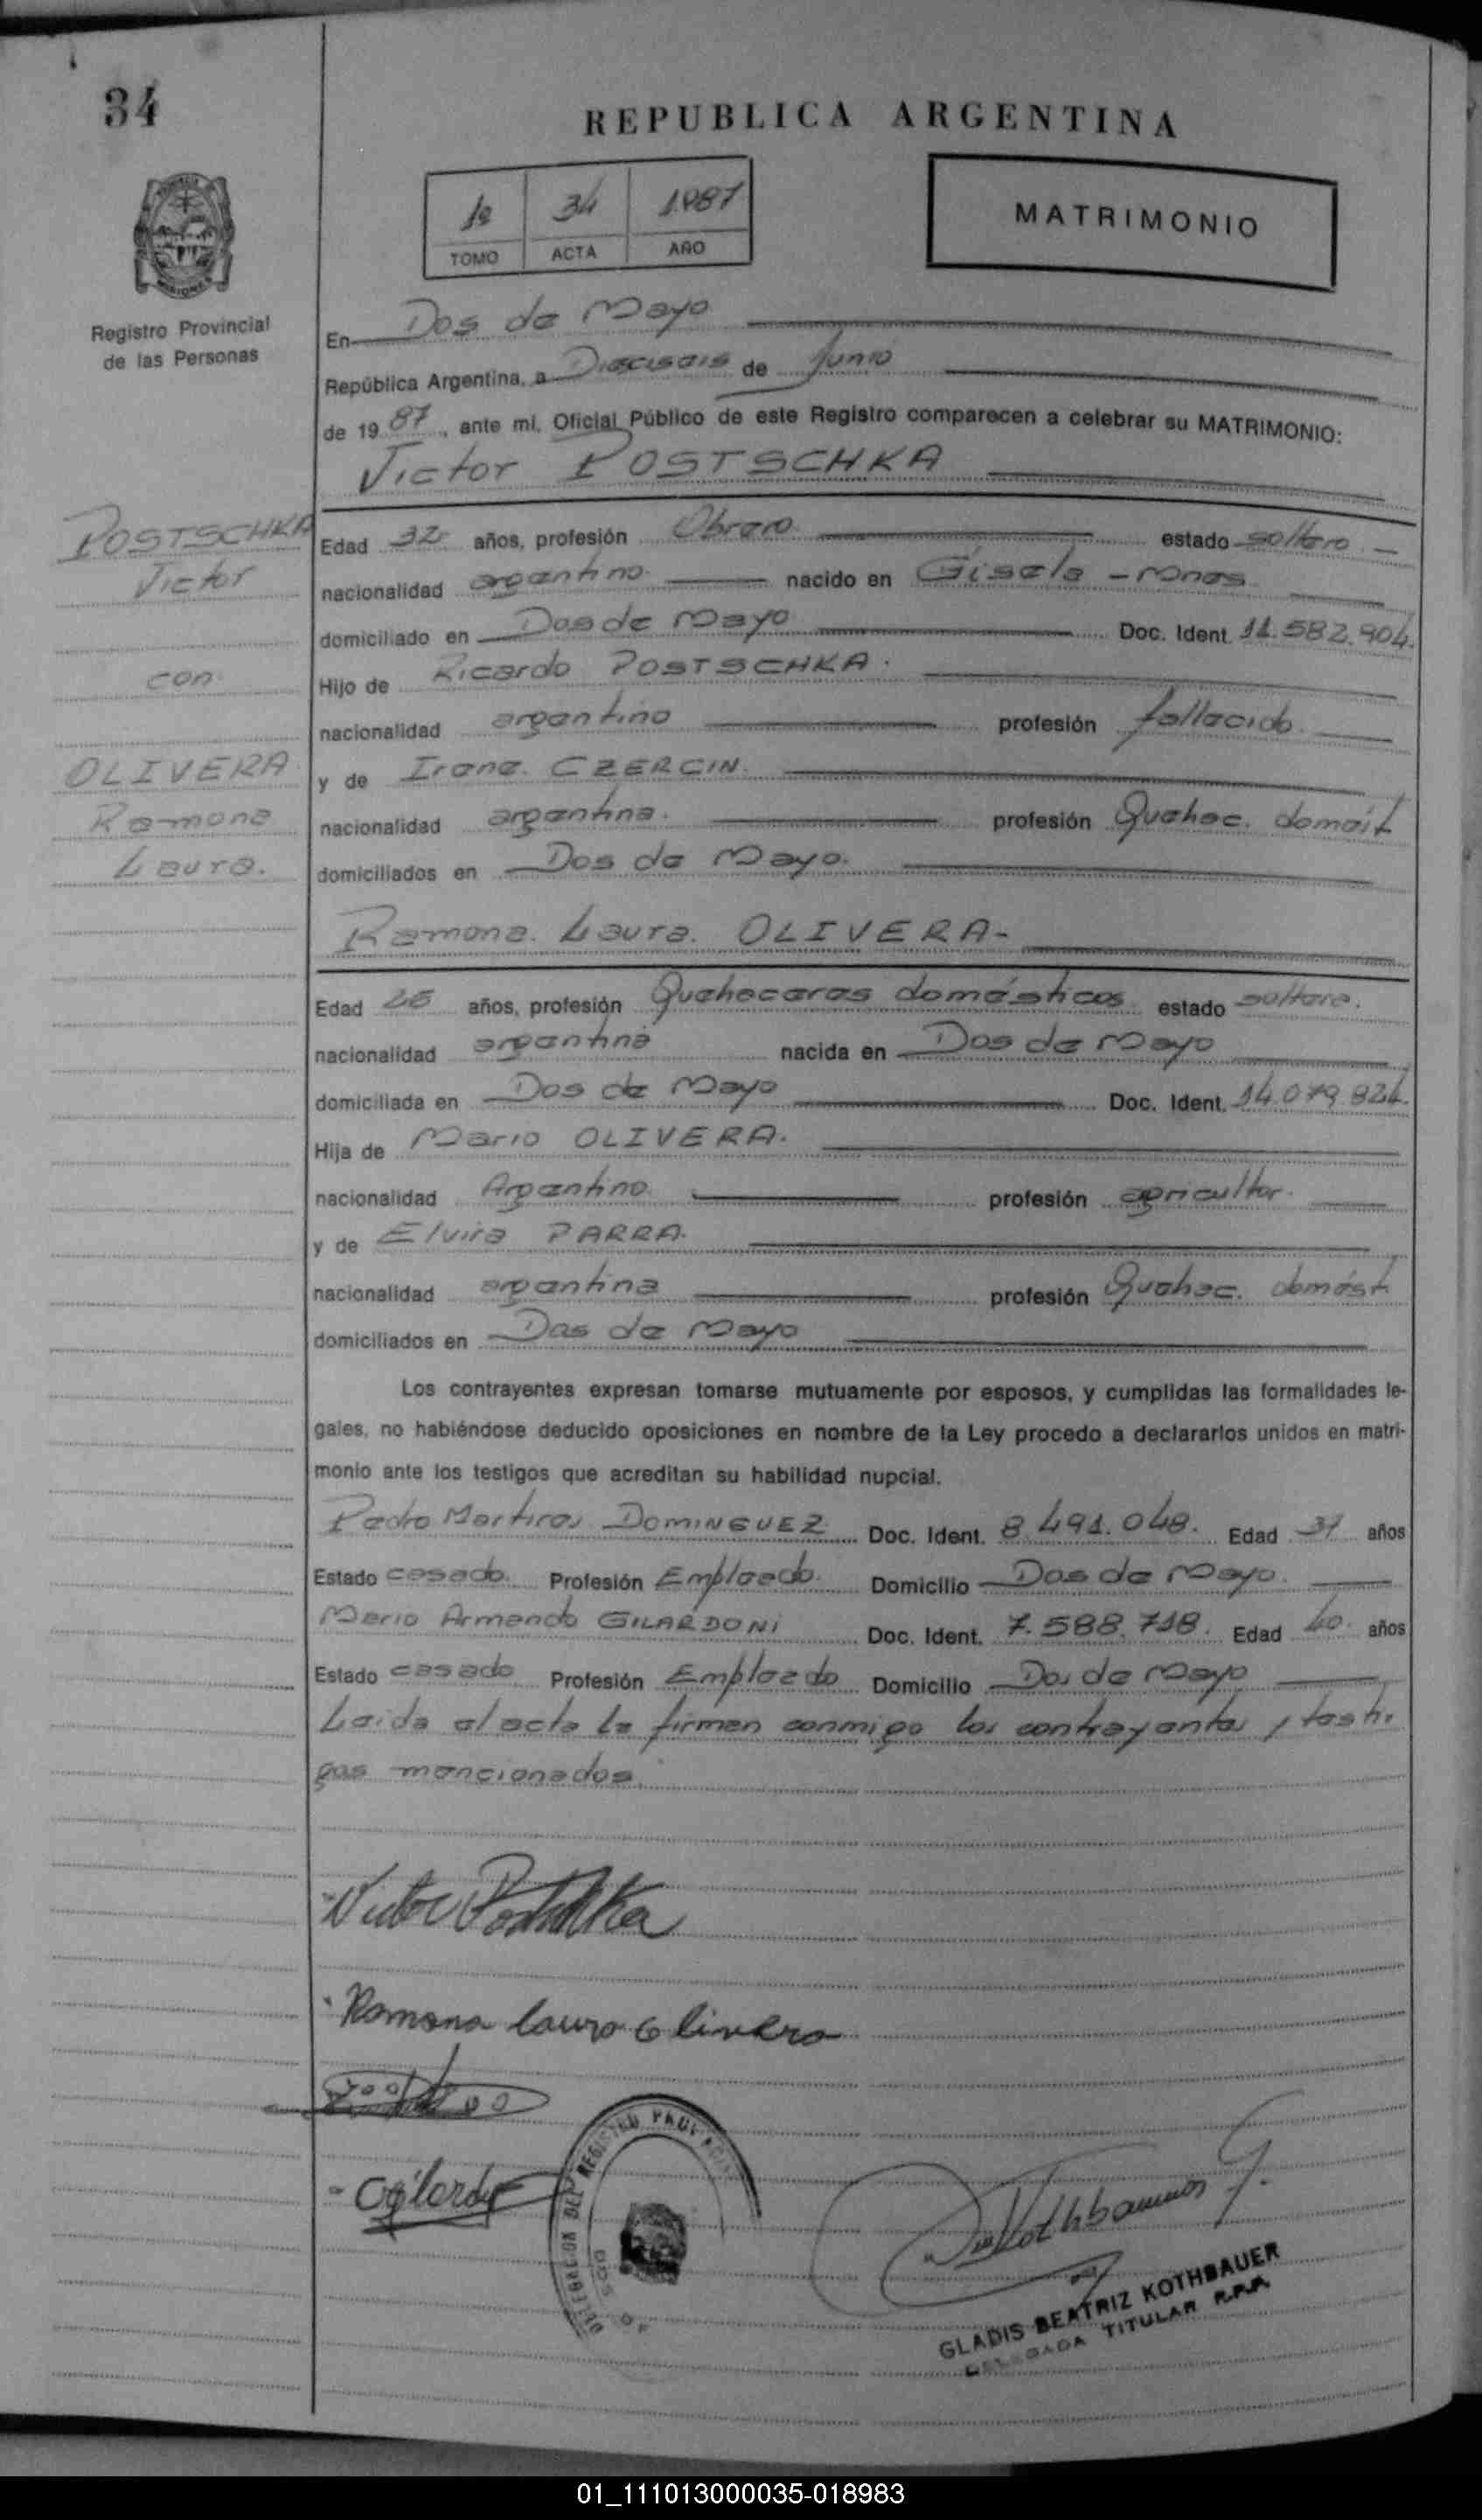 34
REPUBLICA ARGENTINA
1º 34 1987
TOMO ACTA AÑO
MATRIMONIO
Registro Provincial
de las Personas
En Dos de Mayo
República Argentina, a Dieciseis de Junio
de 19 87, ante mi, Oficial Público de este Registro comparecen a celebrar su MATRIMONIO:
Victor POSTSCHKA
POSTSCHKA
Victor
con
OLIVERA
Ramona
Laura.
Edad 32 años, profesión Obrero estado soltero
nacionalidad argentino nacido en Gisela - mnes
domiciliado en Dos de Mayo Doc. Ident. 11.582.904.
Hijo de Ricardo POSTSCHKA.
nacionalidad argentino profesión fallecido.
y de Irene CZERCIN.
nacionalidad argentina. profesión Quehac. domést
domiciliados en Dos de Mayo.
Ramona Laura OLIVERA-
Edad 26 años, profesión Quehaceres domésticos estado soltera.
nacionalidad argentina nacida en Dos de Mayo
domiciliada en Dos de Mayo Doc. Ident. 14.079.824.
Hija de Mario OLIVERA.
nacionalidad Argentino profesión agricultor.
y de Elvira PARRA.
nacionalidad argentina profesión Quehac. domést
domiciliados en Dos de Mayo
Los contrayentes expresan tomarse mutuamente por esposos, y cumplidas las formalidades le-
gales, no habiéndose deducido oposiciones en nombre de la Ley procedo a declararlos unidos en matri-
monio ante los testigos que acreditan su habilidad nupcial.
Pedro Martires DOMINGUEZ Doc. Ident. 8.491.048. Edad 37 años
Estado casado. Profesión Empleado. Domicilio Dos de Mayo.
Mario Armando GILARDONI Doc. Ident. 7.588.718. Edad 40 años
Estado casado Profesión Empleado Domicilio Dos de Mayo
Leida el acta la firman conmigo los contrayentes y testi
gos mencionados.
Victor Postschka
Ramona laura Olivera
DELEGACION DEL REGISTRO PROVINCIAL
DOS D
GLADIS BEATRIZ KOTHBAUER
DELEGADA TITULAR R.P.P.
01_111013000035-018983